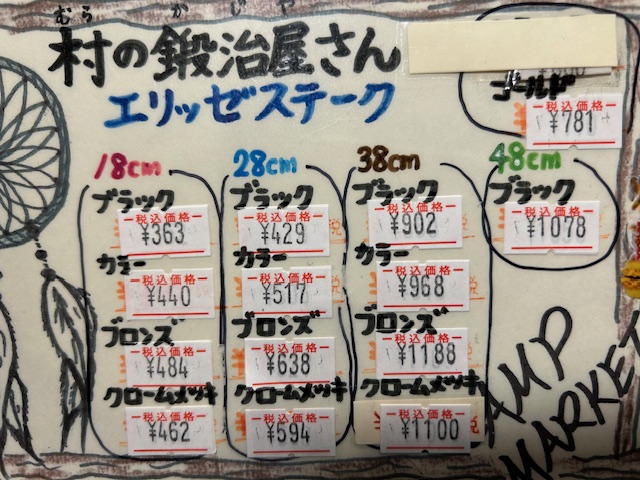 むら かじや
村の鍛冶屋さん
エリッゼステーク
ゴールド
税込価格
¥781
18cm
ブラック
税込価格
¥363
カラー
税込価格
¥440
ブロンズ
税込価格
¥484
クロームメッキ
税込価格
¥462
28cm
ブラック
税込価格
¥429
カラー
税込価格
¥517
ブロンズ
税込価格
¥638
クロームメッキ
税込価格
¥594
38cm
ブラック
税込価格
¥902
カラー
税込価格
¥968
ブロンズ
税込価格
¥1188
クロームメッキ
税込価格
¥1100
48cm
ブラック
税込価格
¥1078
AMP
MARKET